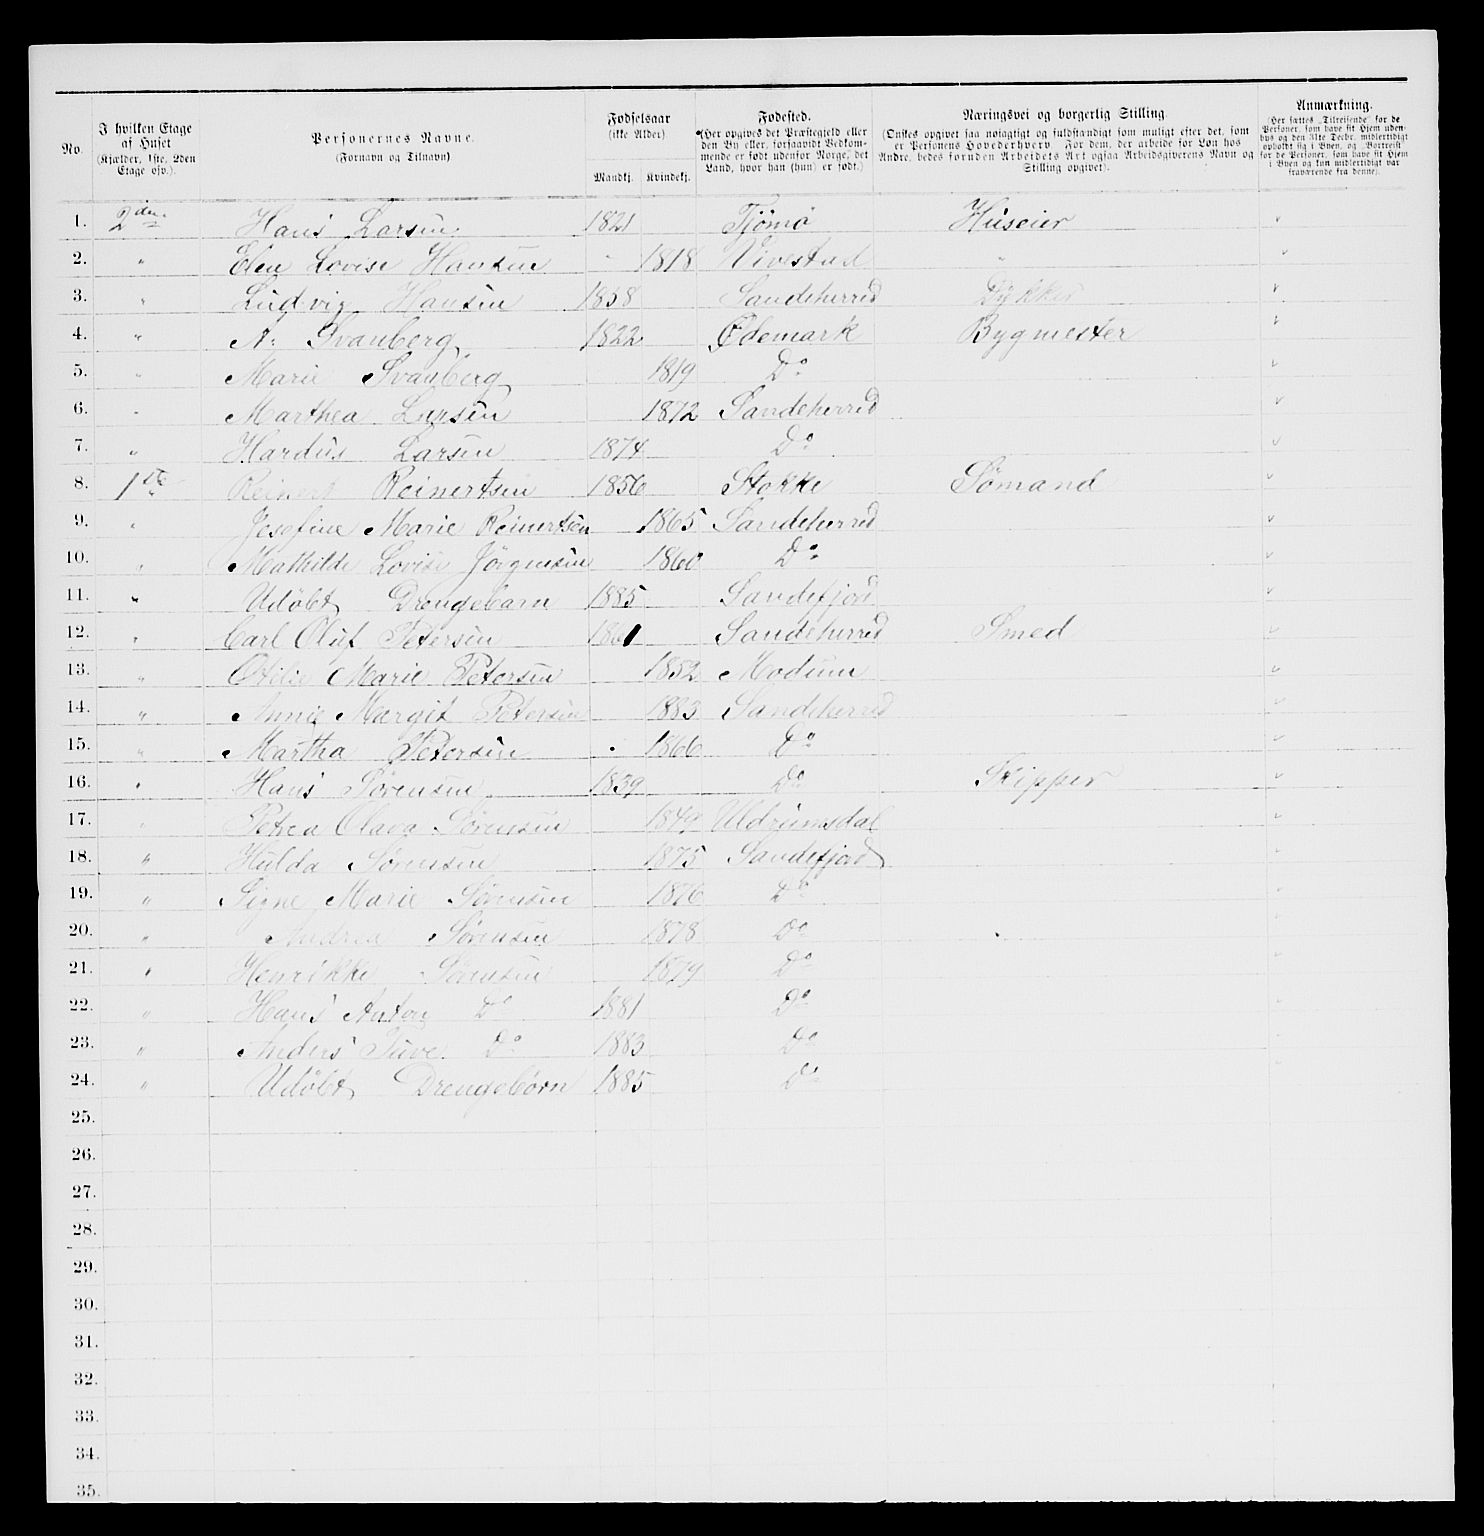 No.
I hvilken Etage af Huset (Kjælder, 1ste, 2den Etage osv.).
Personernes Navne. (Fornavn og Tilnavn)
Fødselsaar (ikke Alder) Mandkj. Kvindekj.
Fødested. (Her opgives det Præstegjeld eller den By eller, forsaavidt Vedkommende er født udenfor Norge, det Land, hvor han (hun) er født.)
Næringsvei og borgerlig Stilling. (Ønskes opgivet saa nøiagtigt og fuldstændigt som muligt efter det, som er Personens Hovederhverv. For dem, der arbeide for Løn hos Andre, bedes foruden Arbeidets Art ogsaa Arbeidsgiverens Navn og Stilling opgivet).
Anmærkning. (Her sættes „Tilreisende" for de Personer, som have sit Hjem udenbys og den 31te Decbr. midlertidigt opholdt sig i Byen, og „Bortreist" for de Personer, som have sit Hjem i Byen og kun midlertidigt var fraværende fra denne).
1. 2den Hans Larsen 1821 Tjömö Huseier "
2. " Elen Lovise Hansen " 1818 Vivestad " "
3. " Ludvig Hansen 1858 Sandeherred Dykker "
4. " A. Svanberg 1822 Ødemark Bygmester "
5. " Marie Svanberg 1819 Do "
6. " Marthea Larsen 1872 Sandeherred "
7. " Hardus Larsen 1874 Do "
8. 1ste Reinert Reinertsen 1856 Stokke Sömand "
9. " Josefine Marie Reinertsen 1865 Sandeherred "
10. " Mathilde Lovise Jörgensen 1860 Do "
11. " Udöbt Drengebarn 1885 Sandefjord "
12. " Carl Oluf Petersen 1861 Sandeherred Smed "
13. " Otilie Marie Petersen 1852 Modum "
14. " Annie Margit Petersen 1883 Sandeherred "
15. " Martha Petersen 1866 Do "
16. " Hans Sörensen 1839 Do Skipper "
17. " Petrea Olava Sörensen 1849 "
18. " Hulda Sörensen 1875 Sandefjord "
19. " Signe Marie Sörensen 1876 Do "
20. " Andrea Sörensen 1878 Do "
21. " Henrikke Sörensen 1879 Do "
22. " Hans Anton Do 1881 Do "
23. " Anders Tuve Do 1883 Do "
24. " Udöbt Drengebörn 1885 Do "
25.
26.
27.
28.
29.
30.
31.
32.
33.
34.
35.